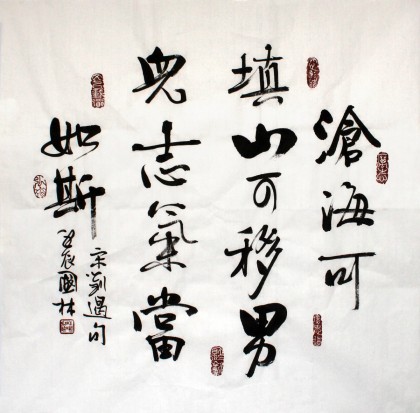 滄海可
填山可移男
兒志氣當
如斯
宋劉過句
壬辰國林